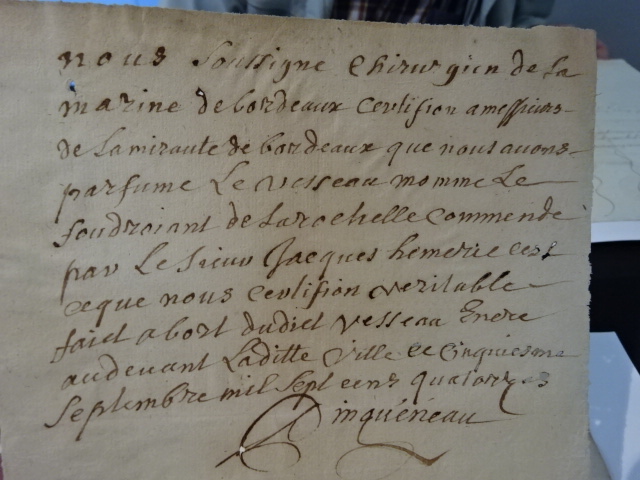 nous soussigne chirurgien de la
marine de bordeaux certifion a messieurs
de lamiraute de bordeaux que nous avons
parfume Le vesseau momme Le
foudroiant de La rochelle commende
par Le sieur Jacques hemerie cest
ce que nous certifion veritable
faict a bort dudict vesseau Encre
au devant Laditte ville Le cinquiesme
septembre mil sept cens quatorze
Cinquéneau